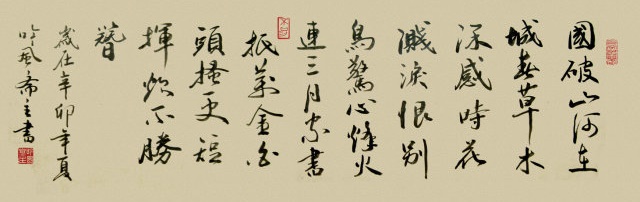 國破山河在
城春草木
深感時花
濺淚恨別
鳥驚心烽火
連三月家書
抵萬金白
頭搔更短
揮欲不勝
簪
歲在辛卯年夏
吟風齋主書